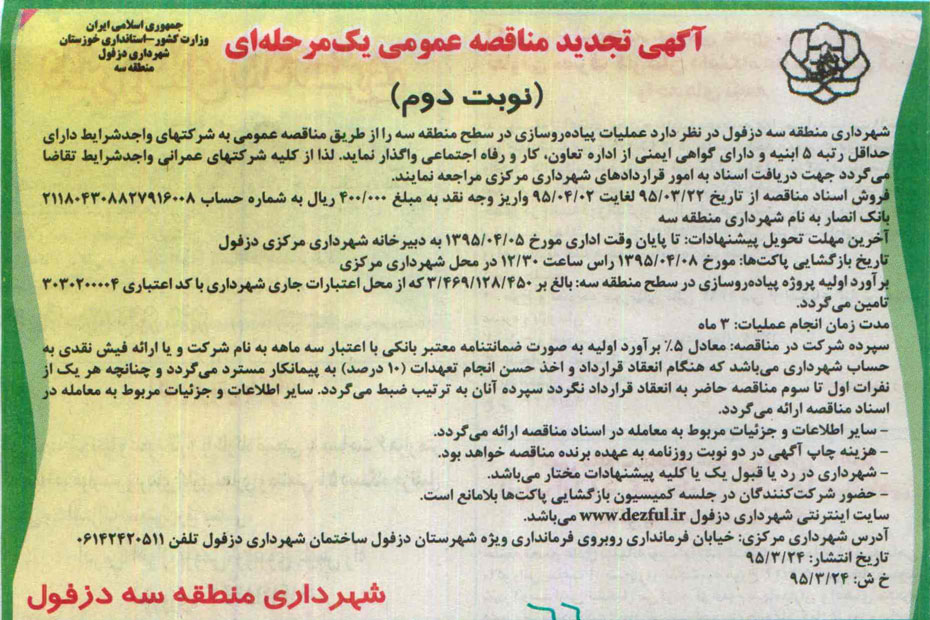 جمهوری اسلامی ایران
وزارت کشور-استانداری خوزستان
شهرداری دزفول
منطقه سه
آگهی تجدید مناقصه عمومی یک‌مرحله‌ای
(نوبت دوم)
شهرداری منطقه سه دزفول در نظر دارد عملیات پیاده‌روسازی در سطح منطقه سه را از طریق مناقصه عمومی به شرکتهای واجدشرایط دارای
حداقل رتبه ۵ ابنیه و دارای گواهی ایمنی از اداره تعاون، کار و رفاه اجتماعی واگذار نماید. لذا از کلیه شرکتهای عمرانی واجدشرایط تقاضا
می‌گردد جهت دریافت اسناد به امور قراردادهای شهرداری مرکزی مراجعه نمایند.
فروش اسناد مناقصه از تاریخ ۹۵/۰۳/۲۲ لغایت ۹۵/۰۴/۰۲ واریز وجه نقد به مبلغ ۴۰۰/۰۰۰ ریال به شماره حساب ۲۱۱۸۰۴۳۰۸۸۲۷۹۱۶۰۰۸
بانک انصار به نام شهرداری منطقه سه
آخرین مهلت تحویل پیشنهادات: تا پایان وقت اداری مورخ ۱۳۹۵/۰۴/۰۵ به دبیرخانه شهرداری مرکزی دزفول
تاریخ بازگشایی پاکت‌ها: مورخ ۱۳۹۵/۰۴/۰۸ راس ساعت ۱۲/۳۰ در محل شهرداری مرکزی
برآورد اولیه پروژه پیاده‌روسازی در سطح منطقه سه: بالغ بر ۳/۴۶۹/۱۲۸/۴۵۰ که از محل اعتبارات جاری شهرداری با کد اعتباری ۳۰۳۰۲۰۰۰۴
تامین می‌گردد.
مدت زمان انجام عملیات: ۳ ماه
سپرده شرکت در مناقصه: معادل ۵٪ برآورد اولیه به صورت ضمانتنامه معتبر بانکی با اعتبار سه ماهه به نام شرکت و یا ارائه فیش نقدی به
حساب شهرداری می‌باشد که هنگام انعقاد قرارداد و اخذ حسن انجام تعهدات (۱۰ درصد) به پیمانکار مسترد می‌گردد و چنانچه هر یک از
نفرات اول تا سوم مناقصه حاضر به انعقاد قرارداد نگردد سپرده آنان به ترتیب ضبط می‌گردد. سایر اطلاعات و جزئیات مربوط به معامله در
اسناد مناقصه ارائه می‌گردد.
- سایر اطلاعات و جزئیات مربوط به معامله در اسناد مناقصه ارائه می‌گردد.
- هزینه چاپ آگهی در دو نوبت روزنامه به عهده برنده مناقصه خواهد بود.
- شهرداری در رد یا قبول یک یا کلیه پیشنهادات مختار می‌باشد.
- حضور شرکت‌کنندگان در جلسه کمیسیون بازگشایی پاکت‌ها بلامانع است.
سایت اینترنتی شهرداری دزفول www.dezful.ir می‌باشد.
آدرس شهرداری مرکزی: خیابان فرمانداری روبروی فرمانداری ویژه شهرستان دزفول ساختمان شهرداری دزفول تلفن ۰۶۱۴۲۴۲۰۵۱۱
تاریخ انتشار: ۹۵/۳/۲۴
خ ش: ۹۵/۳/۲۴
شهرداری منطقه سه دزفول